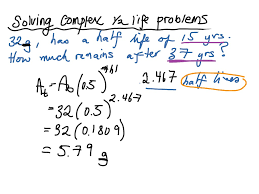 Solving Complex ½ life problems
32g, has a half life of 15 yrs.
How much remains after 37 yrs?
At = A0(0.5)
2.467 half lives
= 32(0.5)^2.467
= 32(0.1809)
= 5.79 g